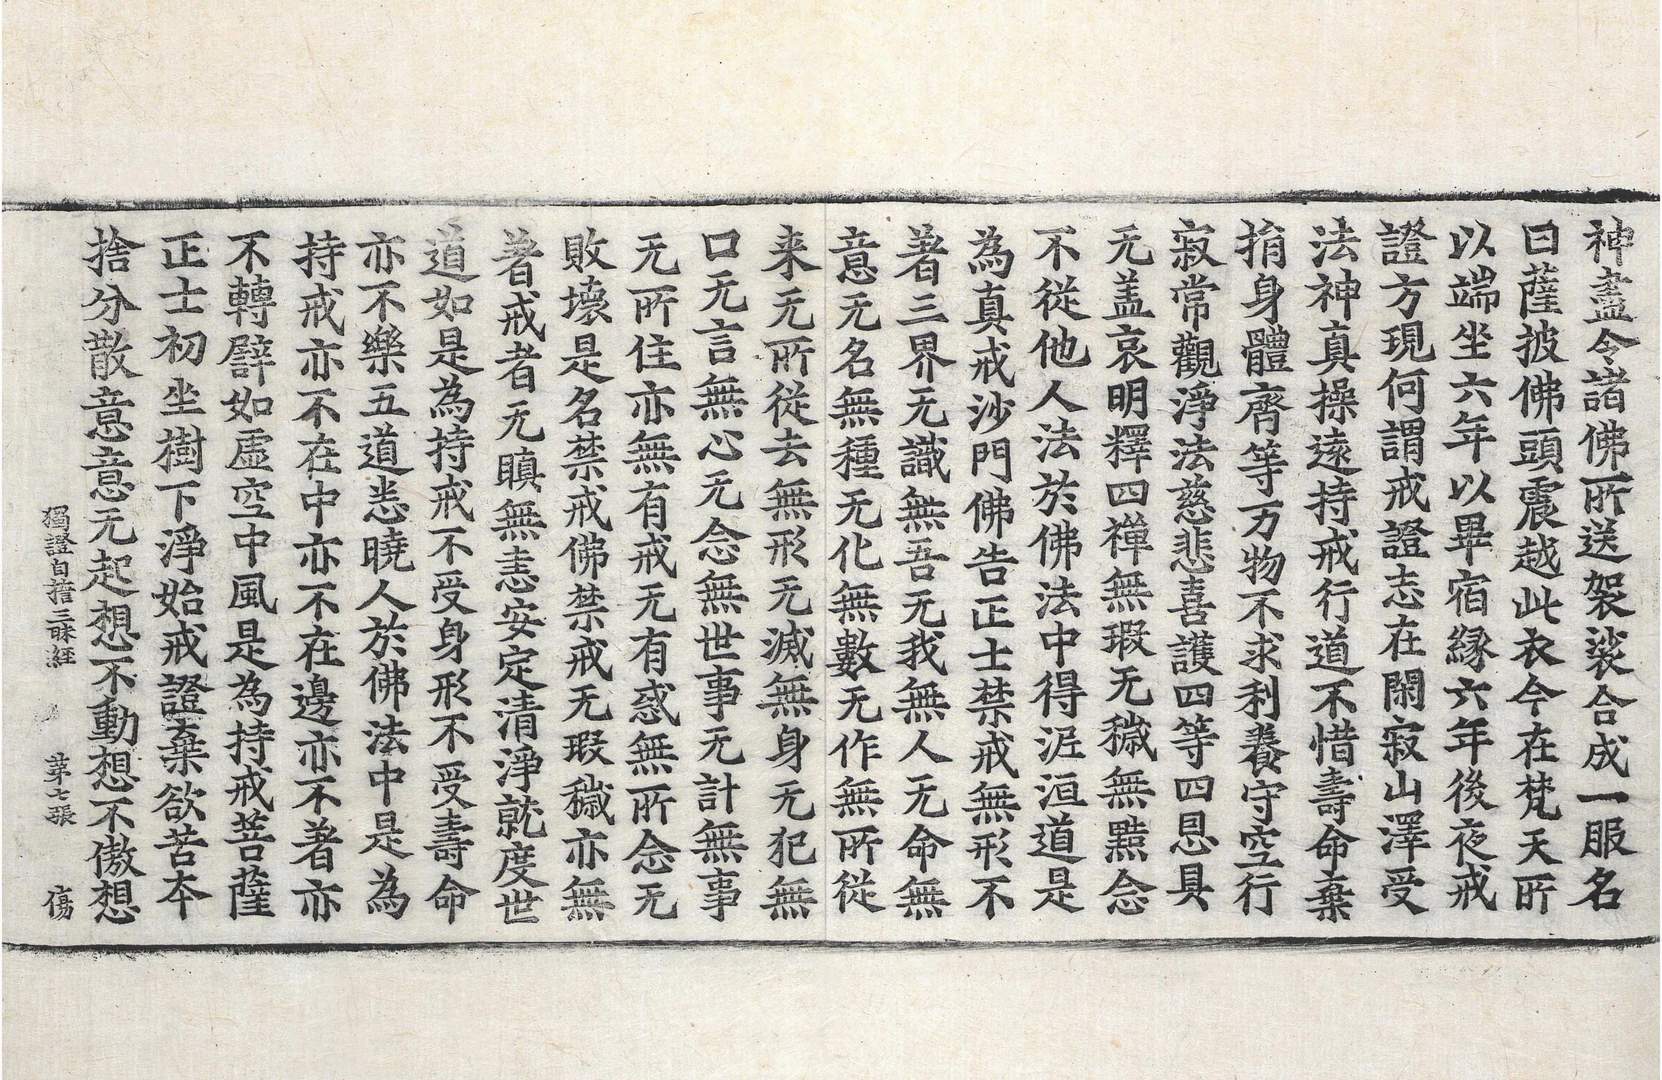 神盡令諸佛所送袈裟合成一服名
曰薩披佛頭震越此衣今在梵天所
以端坐六年以畢宿緣六年後夜戒
證方現何謂戒證志在閑寂山澤受
法神真操遠持戒行道不惜壽命棄
捐身體齊等万物不求利養守空行
寂常觀淨法慈悲喜護四等四恩具
无盖哀明釋四禪無瑕无穢無點念
不從他人法於佛法中得泥洹道是
為真戒沙門佛告正士禁戒無形不
著三界无識無吾无我無人无命無
意无名無種无化無數无作無所從
来无所從去無形无滅無身无犯無
口无言無心无念無世事无計無事
无所住亦無有戒无有惑無所念无
敗壞是名禁戒佛禁戒无瑕穢亦無
著戒者无瞋無恚安定清淨就度世
道如是為持戒不受身形不受壽命
亦不樂五道恙曉人於佛法中是為
持戒亦不在中亦不在邊亦不著亦
不轉譬如虛空中風是為持戒菩薩
正士初坐樹下淨始戒證棄欲苦本
捨分散意意无起想不動想不傲想
獨證自擔三昧経 第七張 傷